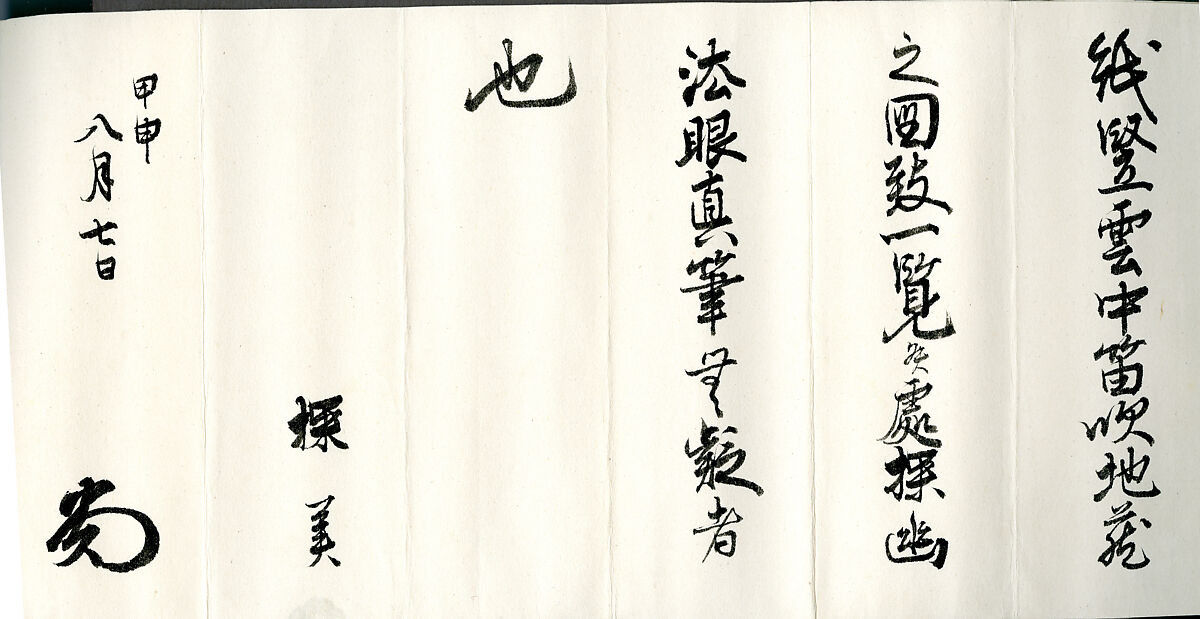 紙竪雲中笛吹地蔵
之図致一覧候處探幽
法眼真筆無疑者
也
探美
甲申
八月七日